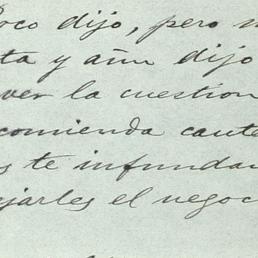 Poco dijo, pero
ta y aún dijo
ver la cuestión
comienda caute
s te infundan
jarles el negoc